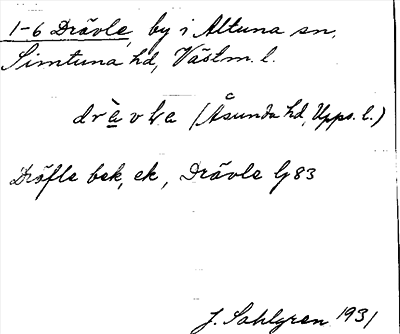 1-6 Drävle, by i Altuna sn,
Simtuna hd, Västm. l.
(Åsunda hd, Upps. l.)
Dröfle bek, ek, Drävle Gj 83
J. Sahlgren 1931